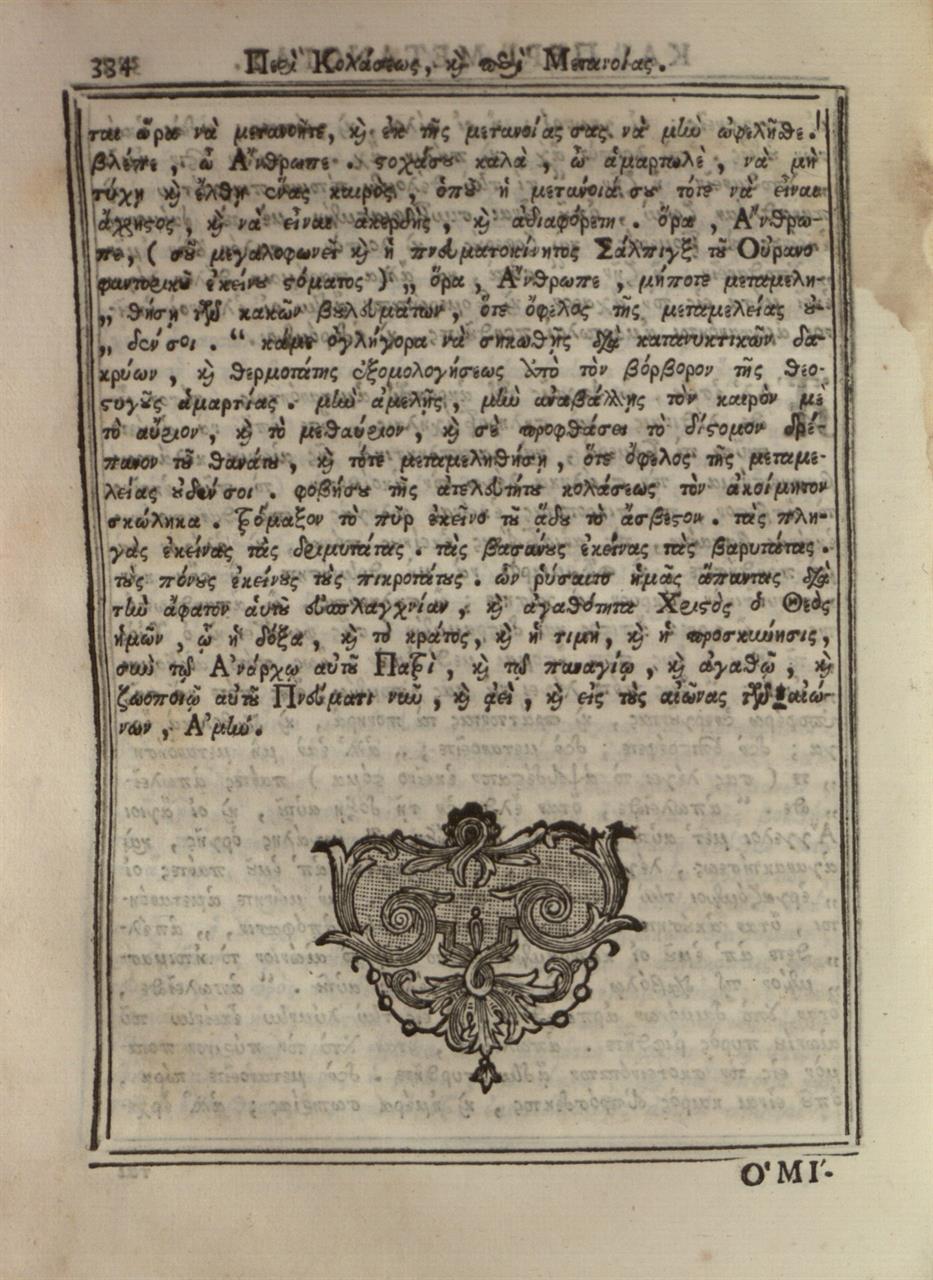 384 Περὶ Κολάσεως, ϗ περὶ Μετανοίας.
ται ὥρα νὰ μετανοῆτε, ϗ ἐκ τῆς μετανοίας σας νὰ μὴν ὠφελῆθε.
βλέπε, ὦ Ἄνθρωπε. στοχάσου καλὰ, ὦ ἁμαρτωλὲ, νὰ μὴ
τύχῃ ϗ ἔλθῃ ἕνας καιρὸς, ὁποῦ ἡ μετάνοιά σου τότε νὰ εἶναι
ἄχρηστος, ϗ νὰ εἶναι ἀκερδὴς, ϗ ἀδιαφόρετη. ὅρα, Ἄνθρω-
πε, (σοῦ μεγαλοφωνεῖ ϗ ἡ πνευματοκίνητος Σάλπιγξ τοῦ Οὐρανο
φαντορικοῦ ἐκείνου στόματος) „ ὅρα, Ἄνθρωπε, μήποτε μεταμελη-
„ θήσῃ τῶν κακῶν βουλευμάτων, ὅτε ὄφελος τῆς μεταμελείας οὐ-
„ δέν σοι. “ κάμε ὀγλήγορα νὰ σηκωθῇς διὰ κατανυκτικῶν δα-
κρύων, ϗ θερμοτάτης ἐξομολογήσεως ἀπὸ τὸν βόρβορον τῆς θεο-
στυγοῦς ἁμαρτίας. μὴν ἀμελῇς, μὴν ἀναβάλλῃς τὸν καιρὸν μὲ
τὸ αὔριον, ϗ τὸ μεθαύριον, ϗ σὲ προφθάσει τὸ δίστομον δρέ-
πανον τοῦ θανάτου, ϗ τότε μεταμεληθήσῃ, ὅτε ὄφελος τῆς μεταμε-
λείας οὐδέν σοι. φοβήσου τῆς ἀτελευτήτου κολάσεως τὸν ἀκοίμητον
σκώληκα. τρόμαξον τὸ πῦρ ἐκεῖνο τοῦ ᾅδου τὸ ἄσβεστον. τὰς πλη-
γὰς ἐκείνας τὰς δριμυτάτας. τὰς βασάνους ἐκείνας τὰς βαρυτάτας.
τοὺς πόνους ἐκείνους τοὺς πικροτάτους. ὧν ῥύσαιτο ἡμᾶς ἅπαντας διὰ
τὴν ἄφατον αὑτοῦ εὐσπλαγχνίαν, ϗ ἀγαθότητα Χριστὸς ὁ Θεὸς
ἡμῶν, ᾧ ἡ δόξα, ϗ τὸ κράτος, ϗ ἡ τιμὴ, ϗ ἡ προσκύνησις,
σὺν τῷ Ἀνάρχῳ αὐτοῦ Πατρὶ, ϗ τῷ παναγίῳ, ϗ ἀγαθῷ, ϗ
ζωοποιῷ αὐτοῦ Πνεύματι νῦν, ϗ ἀεὶ, ϗ εἰς τοὺς αἰῶνας τῶν αἰώ-
νων, Ἀμήν.
ΟʹΜΙʹ-